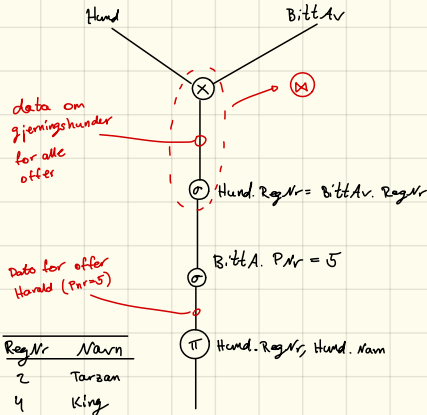 Hund
BittAv
×
⋈
data om
gjerningshunder
for alle
offer
σ
Hund.RegNr = BittAv.RegNr
BittA.PNr = 5
σ
Data for offer
Harald (Pnr=5)
π
Hund.RegNr, Hund.Navn
RegNr Navn
2 Tarzan
4 King